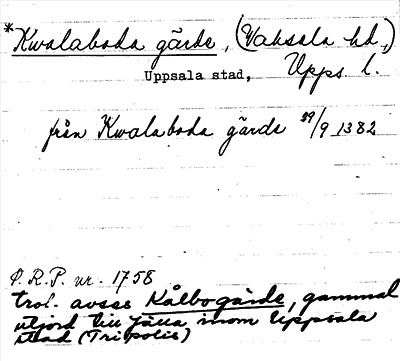 *Kwalaboda gärde, (Vaksala hd,)
Uppsala stad, Upps. l.
från Kwalaboda gärde 29/9 1382
Ø.R.P. nr. 1758
trol. avses Kålbogärde, gammal
utjord till Fälla inom Uppsala
stad (Tripolis)